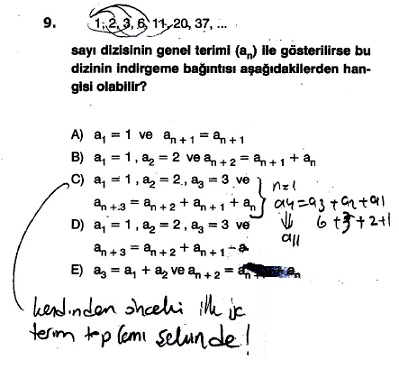 9. 1, 2, 3, 6, 11, 20, 37, ...
sayı dizisinin genel terimi (aₙ) ile gösterilirse bu
dizinin indirgeme bağıntısı aşağıdakilerden han-
gisi olabilir?
A) a₁ = 1 ve aₙ₊₁ = aₙ₊₁
B) a₁ = 1, a₂ = 2 ve aₙ₊₂ = aₙ₊₁ + aₙ
C) a₁ = 1, a₂ = 2, a₃ = 3 ve
aₙ₊₃ = aₙ₊₂ + aₙ₊₁ + aₙ
n=1
a4=a3+a2+a1
6+3+2+1
a11
D) a₁ = 1, a₂ = 2, a₃ = 3 ve
aₙ₊₃ = aₙ₊₂ + aₙ₊₁ - a
E) a₃ = a₁ + a₂ ve aₙ₊₂ = aₙ aₙ
kendinden önceki ilk üç
terim toplamı şeklinde!